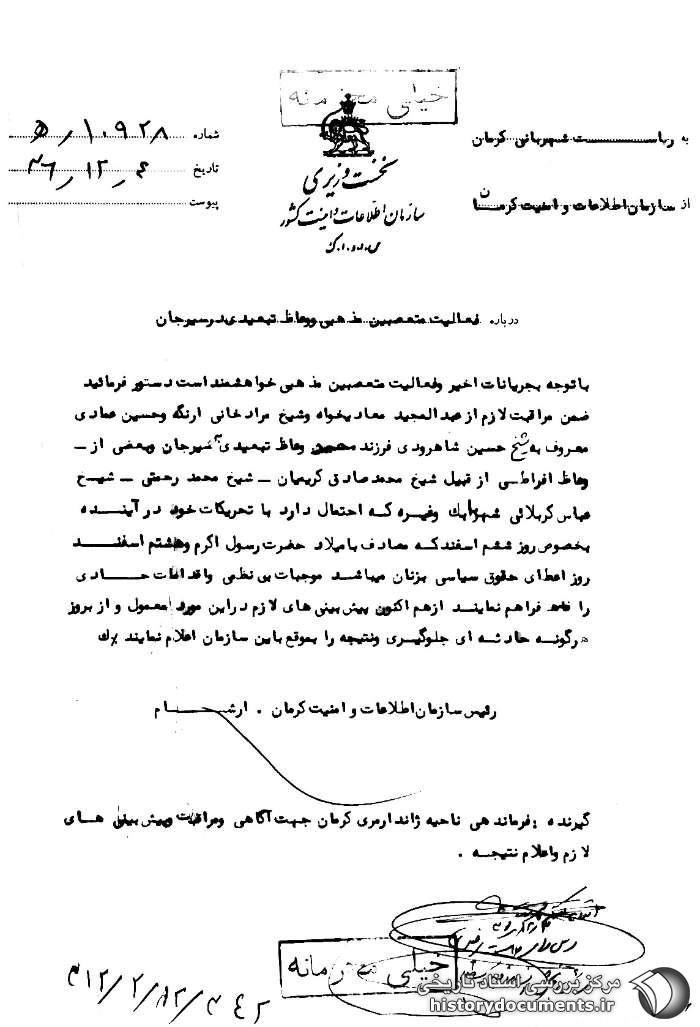 خیلی محرمانه
به ریاست شهربانی کرمان
از سازمان اطلاعات و امنیت کرمان
نخست وزیری
سازمان اطلاعات و امنیت کشور
س.ا.و.ا.ک
شماره ۱۰۹۲۸/ه
تاریخ ۴/۱۲/۴۶
پیوست
درباره فعالیت متعصبین مذهبی ووعاظ تبعیدی درسیرجان
باتوجه بجریانات اخیر وفعالیت متعصبین مذهبی خواهشمند است دستور فرمائید
ضمن مراقبت لازم از عبدالمجید معادیخواه وشیخ مرادخانی ارنگه وحسین عمادی
معروف به شیخ حسین شاهرودی فرزند وعاظ تبعیدی سیرجان وبعضی از ـ
وعاظ افراطی از قبیل شیخ محمدصادق کریمیان ـ شیخ محمد رحمتی ـ شیخ
عباس کربلائی وغیره که احتمال دارد با تحریکات خود در آینده
بخصوص روز ششم اسفندکه مصادف بامیلاد حضرت رسول اکرم وهشتم اسفند
روز اعطای حقوق سیاسی بزنان میباشد موجبات بی نظمی واقدامات حادی
را فراهم نمایند ازهم اکنون پیش بینی های لازم دراین مورد معمول و از بروز
هرگونه حادثه ای جلوگیری ونتیجه را بموقع باین سازمان اعلام نمایند
رئیس سازمان اطلاعات و امنیت کرمان . ارشام
گیرنده : فرماندهی ناحیه ژاندارمری کرمان جهت آگاهی ومراقبت وپیش بینی های
لازم واعلام نتیجه .
خیلی محرمانه
مرکز بررسی اسناد تاریخی
historydocuments.ir